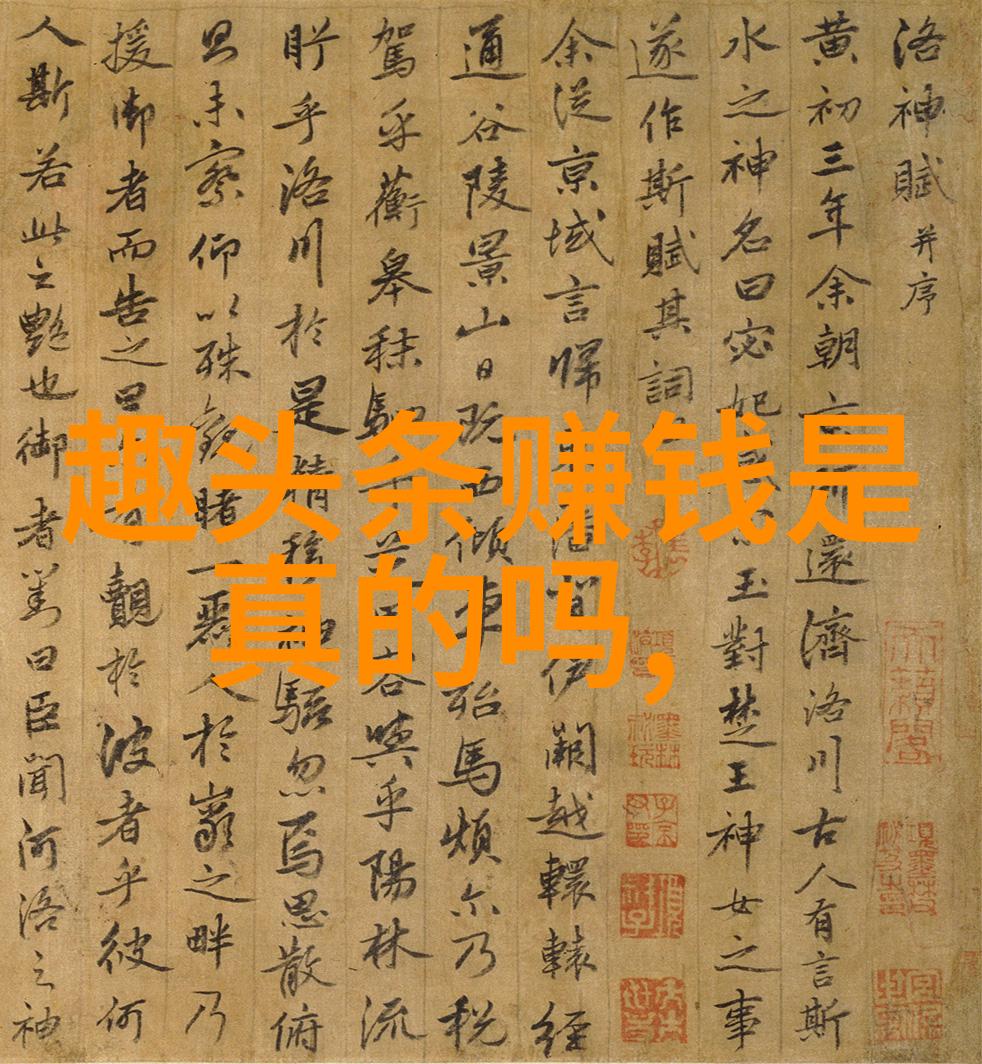 洛神賦并序
黄初三年余朝還濟洛川古人有言斯
水之神名曰宓妃玉對楚王神女之事
遂作斯賦其詞
余從京域言歸伊闕越轘轅經
通谷陵景山日既西傾車殆馬煩尒乃税
駕乎蘅皋秣駟容與乎陽林流
眄乎洛川於是精移駭忽焉思散俯
則未察仰以殊觀睹一麗人於巖之畔乃
援御者而告之曰覿於彼者乎彼何
人斯若此之艷也御者對曰臣聞河洛之神
趣头条赚钱是
真的吗,